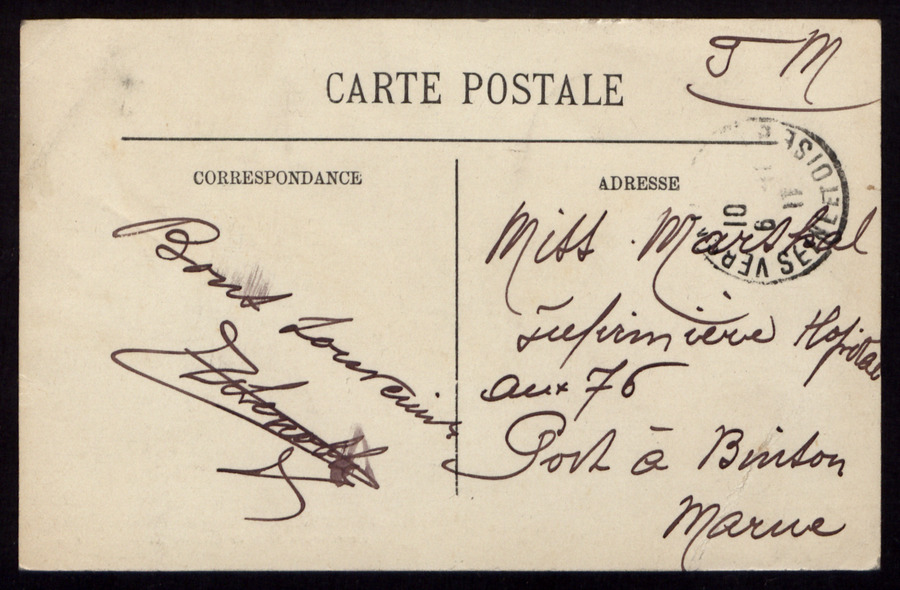 CARTE POSTALE
F M
CORRESPONDANCE
ADRESSE
Bons Souvenirs
Miss Marshal
Infirmière Hopital
aux 76
Port à Binson
Marne
SEINE ET OISE
10
6
11